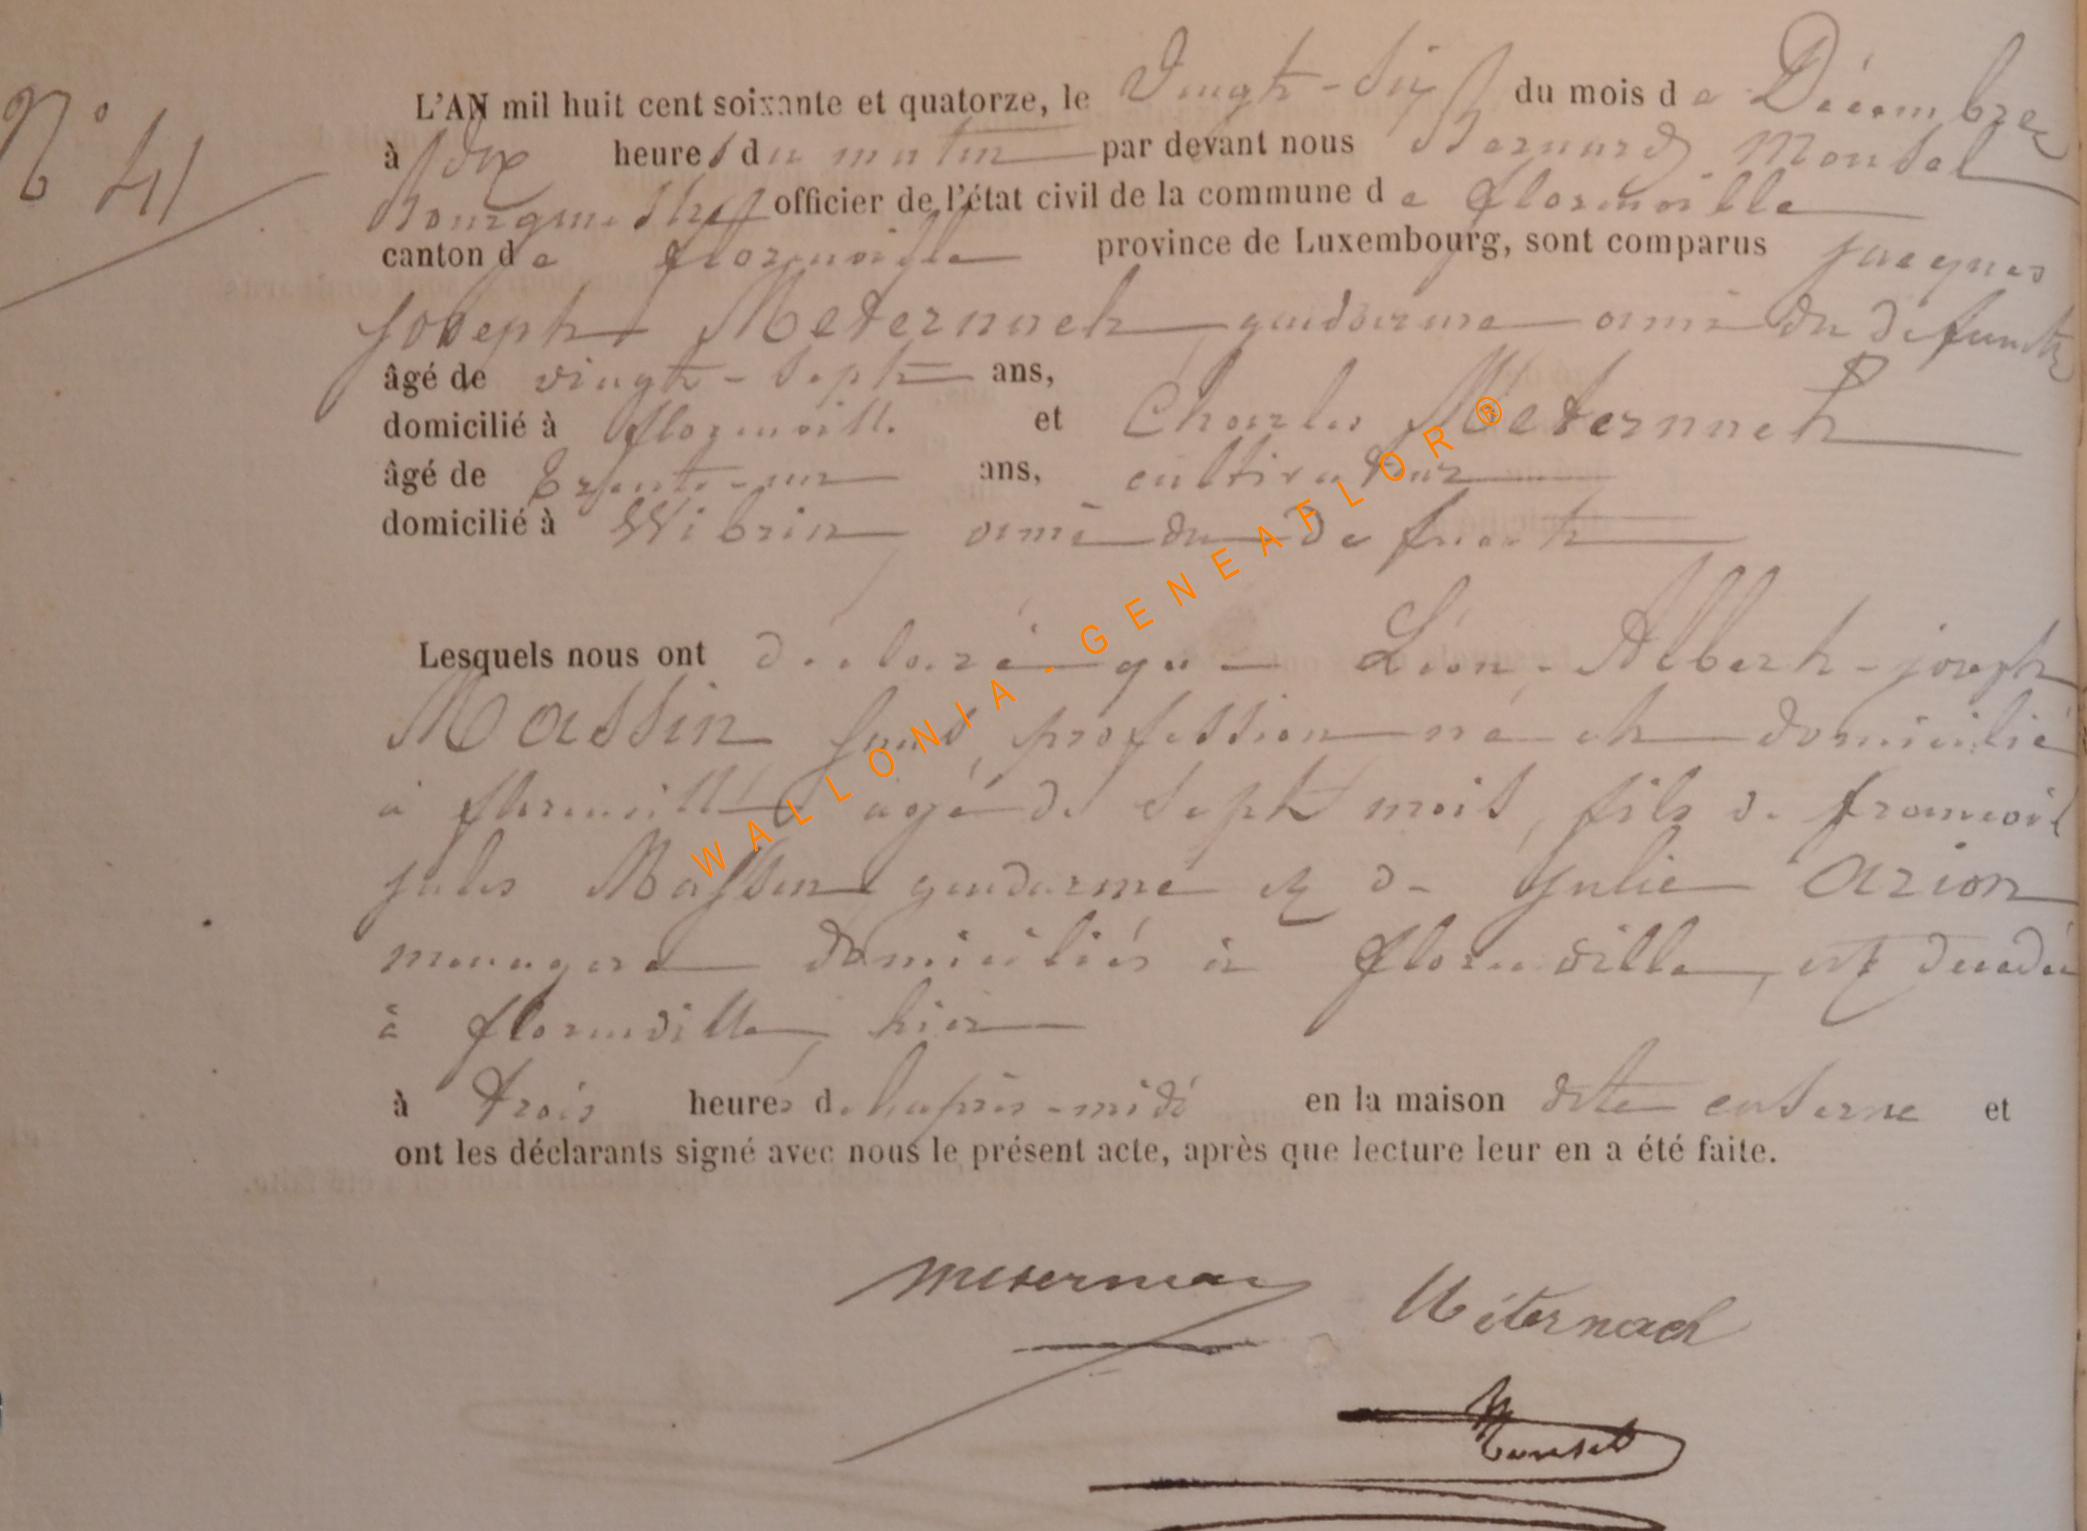 N° 41
L'AN mil huit cent soixante et quatorze, le Vingt-Six du mois de Décembre
à dix heures du matin par devant nous Bernard Monsel
Bourgmestre officier de l'état civil de la commune de florenville
canton de florenville province de Luxembourg, sont comparus jacques
joseph Meternach gendarme ami du défunt
âgé de vingt-sept ans,
domicilié à florenville et Charles Meternach
âgé de trente-un ans, cultivateur
domicilié à Wibrin ami du defunt
Lesquels nous ont déclaré que Léon-Albert-joseph
Massin sans profession né et domicilié
à florenville agé de sept mois, fils de francois
jules Massin gendarme et de Julie Arion
menagere domiciliés à florenville, est decedé
à florenville, hier
à trois heures de l'après-midi en la maison dite caserne et
ont les déclarants signé avec nous le présent acte, après que lecture leur en a été faite.
Meternach Méternach
Monsel
WALLONIA-GENEAFLOR®